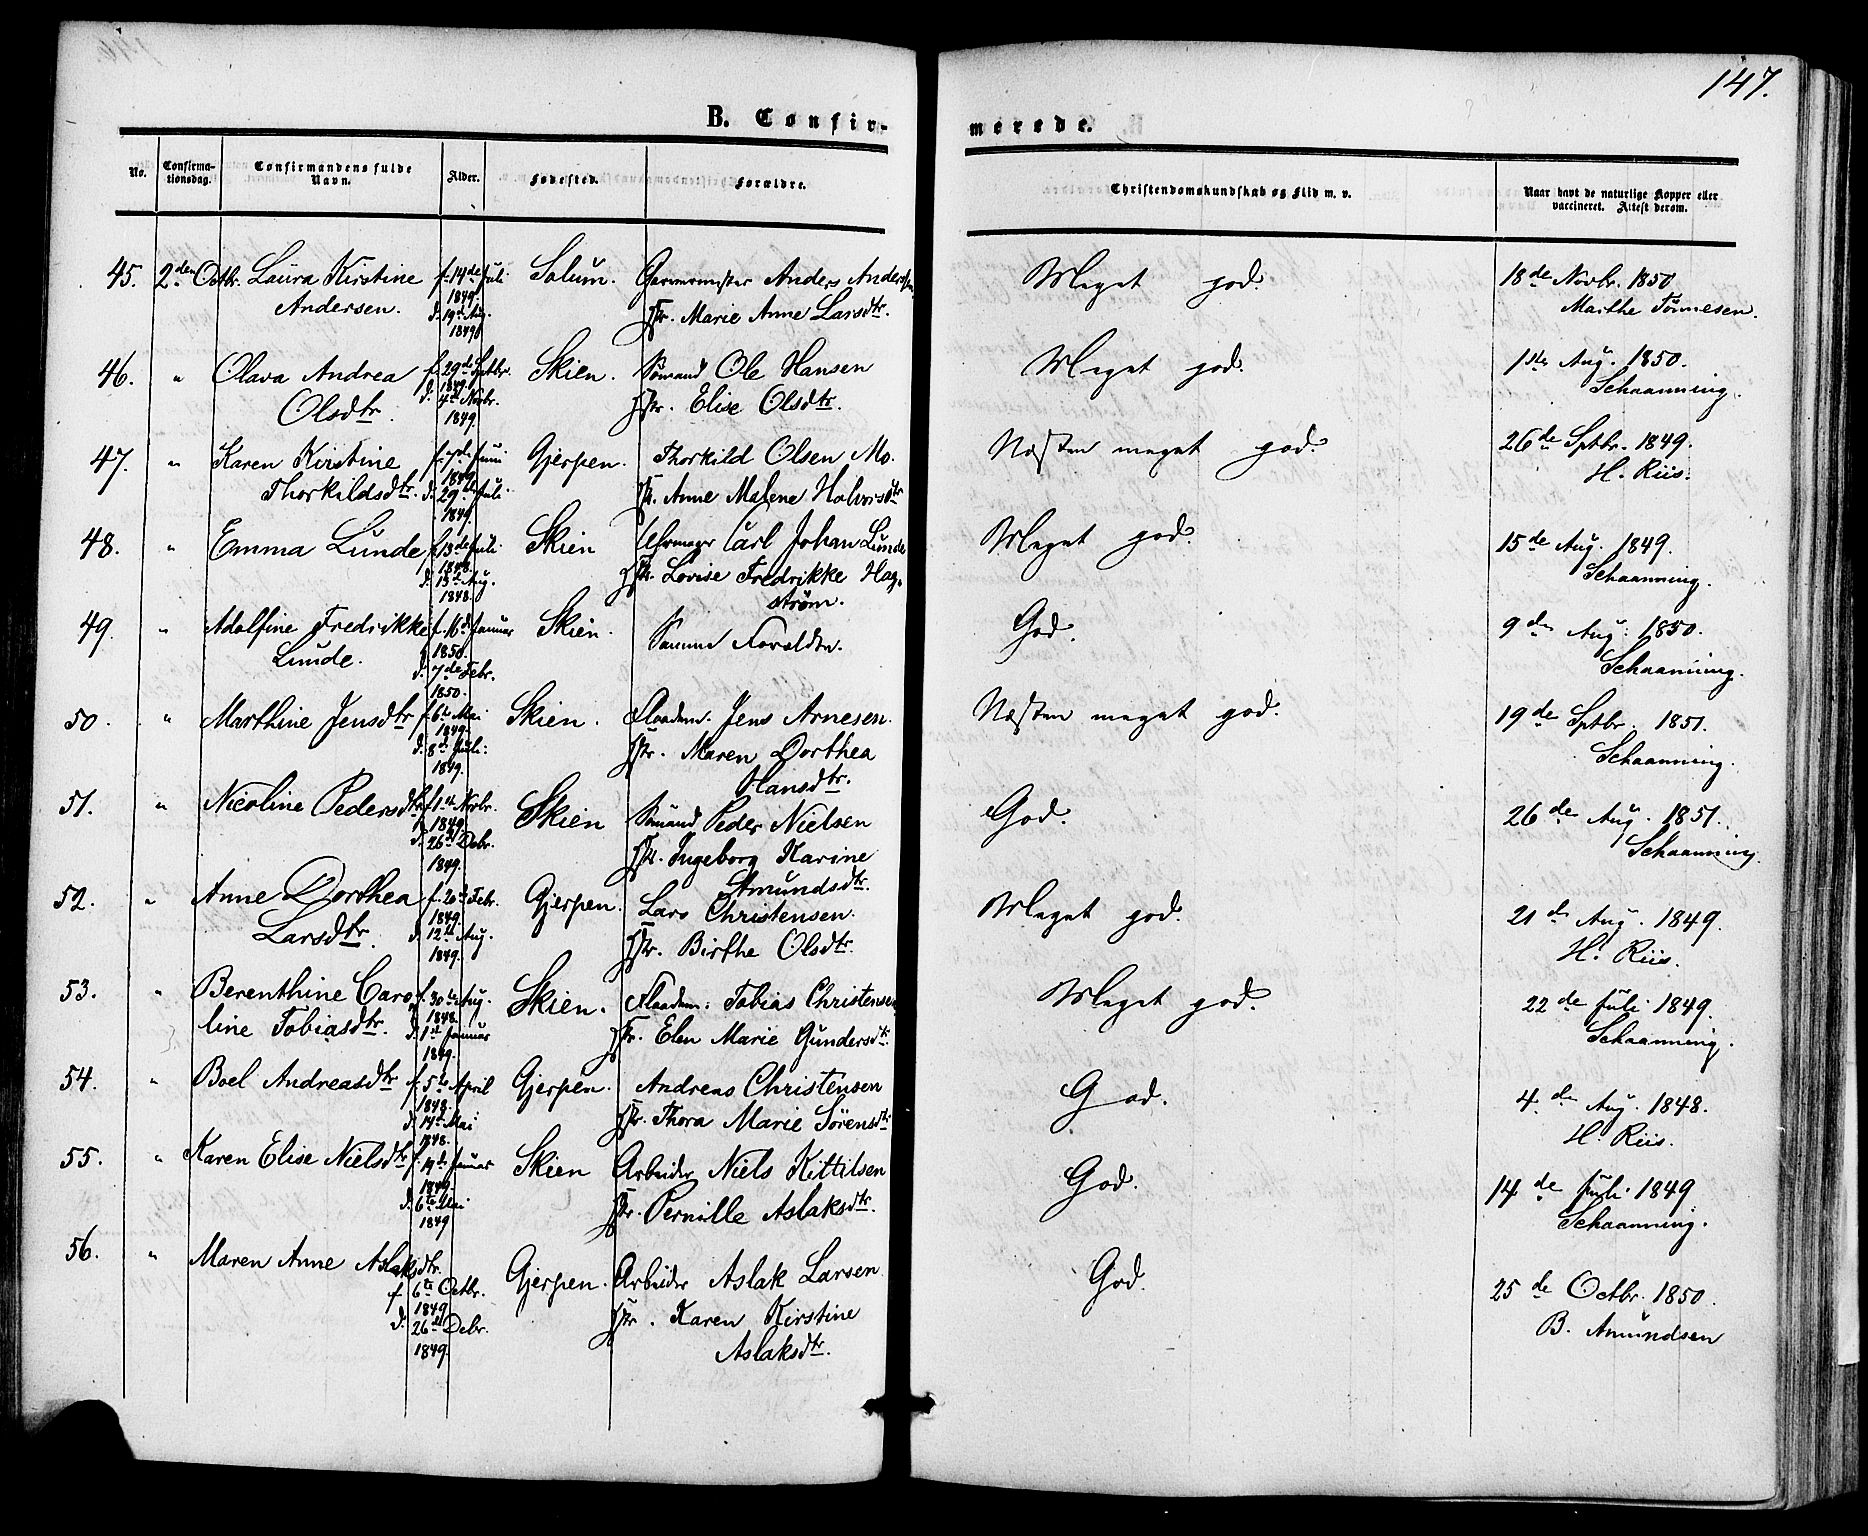 147.
B. Confir-
merede.
No.
Confirma-
tionsdag.
Confirmandens fulde
Navn.
Alder.
Fødested.
Forældre.
Christendomskundskab og Flid m. v.
Naar havt de naturlige Kopper eller
vaccineret. Attest derom.
45. 2den Octbr. Laura Kirstine f. 14de Juli Solum. Garvermester Anders Andersen Meget god. 18de Novbr. 1850
Andersen. 1849. Hstr. Marie Anne Larsdtr. Marthe Tønnesen.
d. 19de Aug.
1849.
46. " Olava Andrea f. 29de Septbr. Skien. Sømand Ole Hansen Meget god. 1ste Aug. 1850.
Olsdtr. 1849. Hstr. Elise Olsdtr. Schaanning.
d. 4de Novbr.
1849.
47. " Karen Kirstine f. 7de Juni Gjerpen. Thorkild Olsen Mo. Næsten meget god. 26de Sptbr. 1849.
Thorkildsdtr. 1849. Hstr. Anne Malene Halvorsdtr H. Riis.
d. 29de Juli
1849.
48. " Emma Lunde f. 13de Juli Skien Uhrmager Carl Johan Lunde Meget god. 15de Aug. 1849.
1848. Hstr. Lovise Fredrikke Hag- Schaanning.
d. 13de Aug. strøm.
1848.
49. " Adolfine Fredrikke f. 16de Januar Skien. Samme Forældre. God. 9de Aug. 1850.
Lunde. 1850. Schaanning.
d. 7de Febr.
1850.
50. " Marthine Jensdtr f. 6te Mai Skien. Flaadem. Jens Arnesen. Næsten meget god. 19de Sptbr. 1851.
1849. Hstr. Maren Dorthea Schaanning.
d. 8de Juli: Hansdtr.
1849.
51. " Nicoline Pedersdtr f. 1ste Novbr. Skien Sømand Peder Nielsen God. 26de Aug. 1851.
1849. Hstr. Ingeborg Karine Schaanning.
d. 26de Debr. Amundsdtr.
1849.
52. " Anne Dorthea f. 20de Febr. Gjerpen. Lars Christensen. Meget god. 21de Aug. 1849.
Larsdtr. 1849. Hstr. Birthe Olsdtr. H. Riis.
d. 12te Aug.
1849.
53. " Berenthine Caro f. 30te Aug. Skien. Flaadem: Tobias Christensen Meget god. 22de Juli 1849.
line Tobiasdtr. 1848. Hstr. Elen Marie Gundersdtr. Schaanning.
d. 1ste Januar
1849.
54. " Boel Andreasdtr f. 5te April Gjerpen. Andreas Christensen God. 4de Aug. 1848.
1848. Hstr. Thora Marie Sørensdtr H. Riis.
d. 14de Mai
1848.
55. " Karen Elise Nielsdtr f. 19de Januar Skien Arbeider Niels Kittilsen God. 14de Juli 1849
1849. Hstr. Pernille Aslaksdtr. Schaanning.
d. 6te Mai
1849
56. " Maren Anne Aslaksdtr. Gjerpen. Arbeider Aslak Larsen God. 25de Octbr. 1850.
f. 6te Octbr. Hstr. Karen Kirstine B. Amundsen
1849 Aslaksdtr.
d. 26de Debr.
1849.